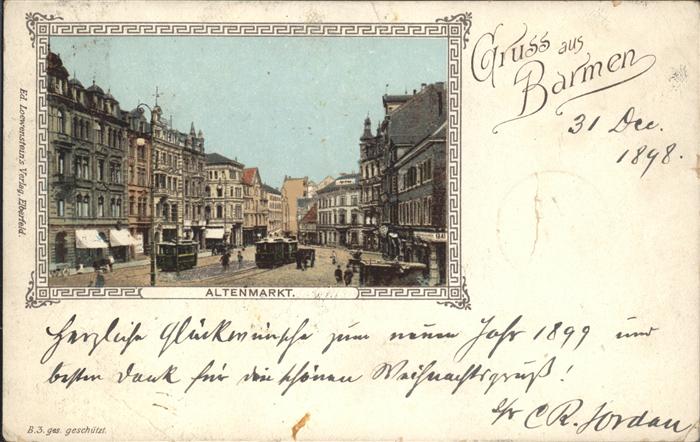 Gruss aus
Barmen
31 Dec.
1898.
Ed. Loewenstein's Verlag, Elberfeld.
ALTENMARKT.
Herzliche Glückwünsche zum neuen Jahr 1899 und
besten Dank für die schönen Weihnachtsgruß!
C R. Jordan
B.3. ges. geschützt.